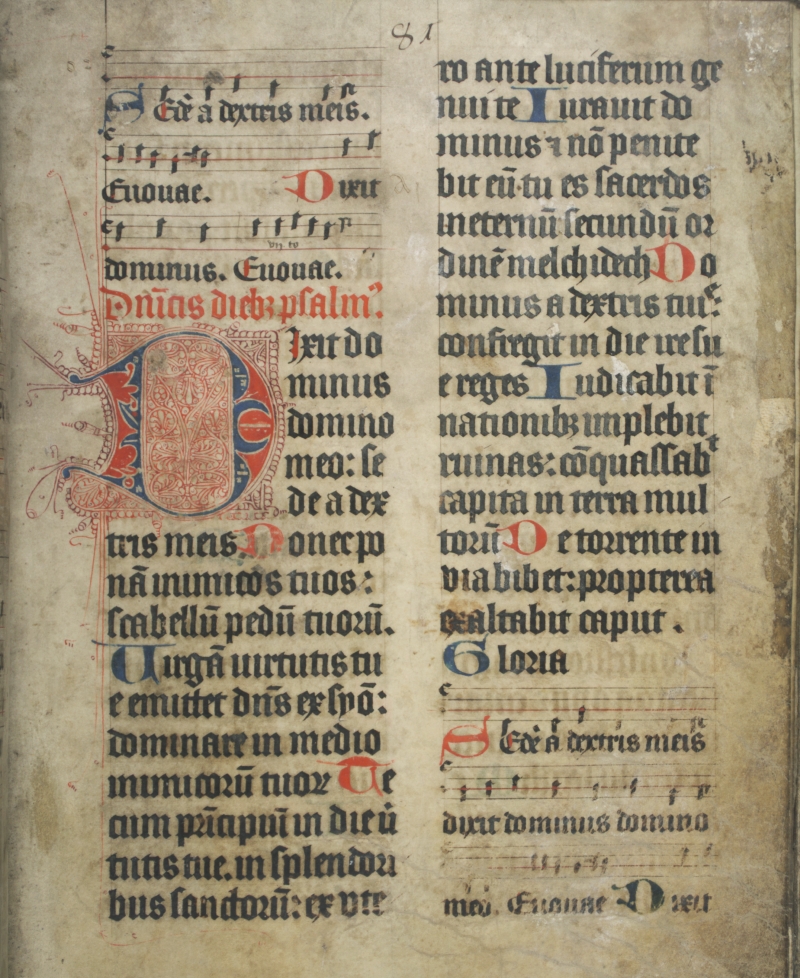 81
Sede a dextris meis.
Euouae. Dixit
dominus. Euouae.
Dnicis dieb; psalm9.
Dixit do
minus
domino
meo: se
de a dex
tris meis. Donec po
nā inimicos tuos:
scabellū pedū tuorū.
Uirgā uirtutis tu
e emittet dn̄s ex syō:
dominare in medio
inimicorū tuoꝝ Te
cum prīcipiū in die ū
tutis tue. in splendori
bus sanctorū: ex vte
ro ante luciferum ge
nui te Iurauit do
minus ⁊ nō penite
bit eū. tu es sacerdos
in eternū secundū or
dinē melchidech Do
minus a dextris tuis
confregit in die ire su
e reges Iudicabit ī
nationib; implebit
ruinas: cōquassabit
capita in terra mul
torū De torrente in
via bibet: propterea
exaltabit caput.
Gloria
Sede a dextris meis
dixit dominus domino
meo. Euouae Dixit